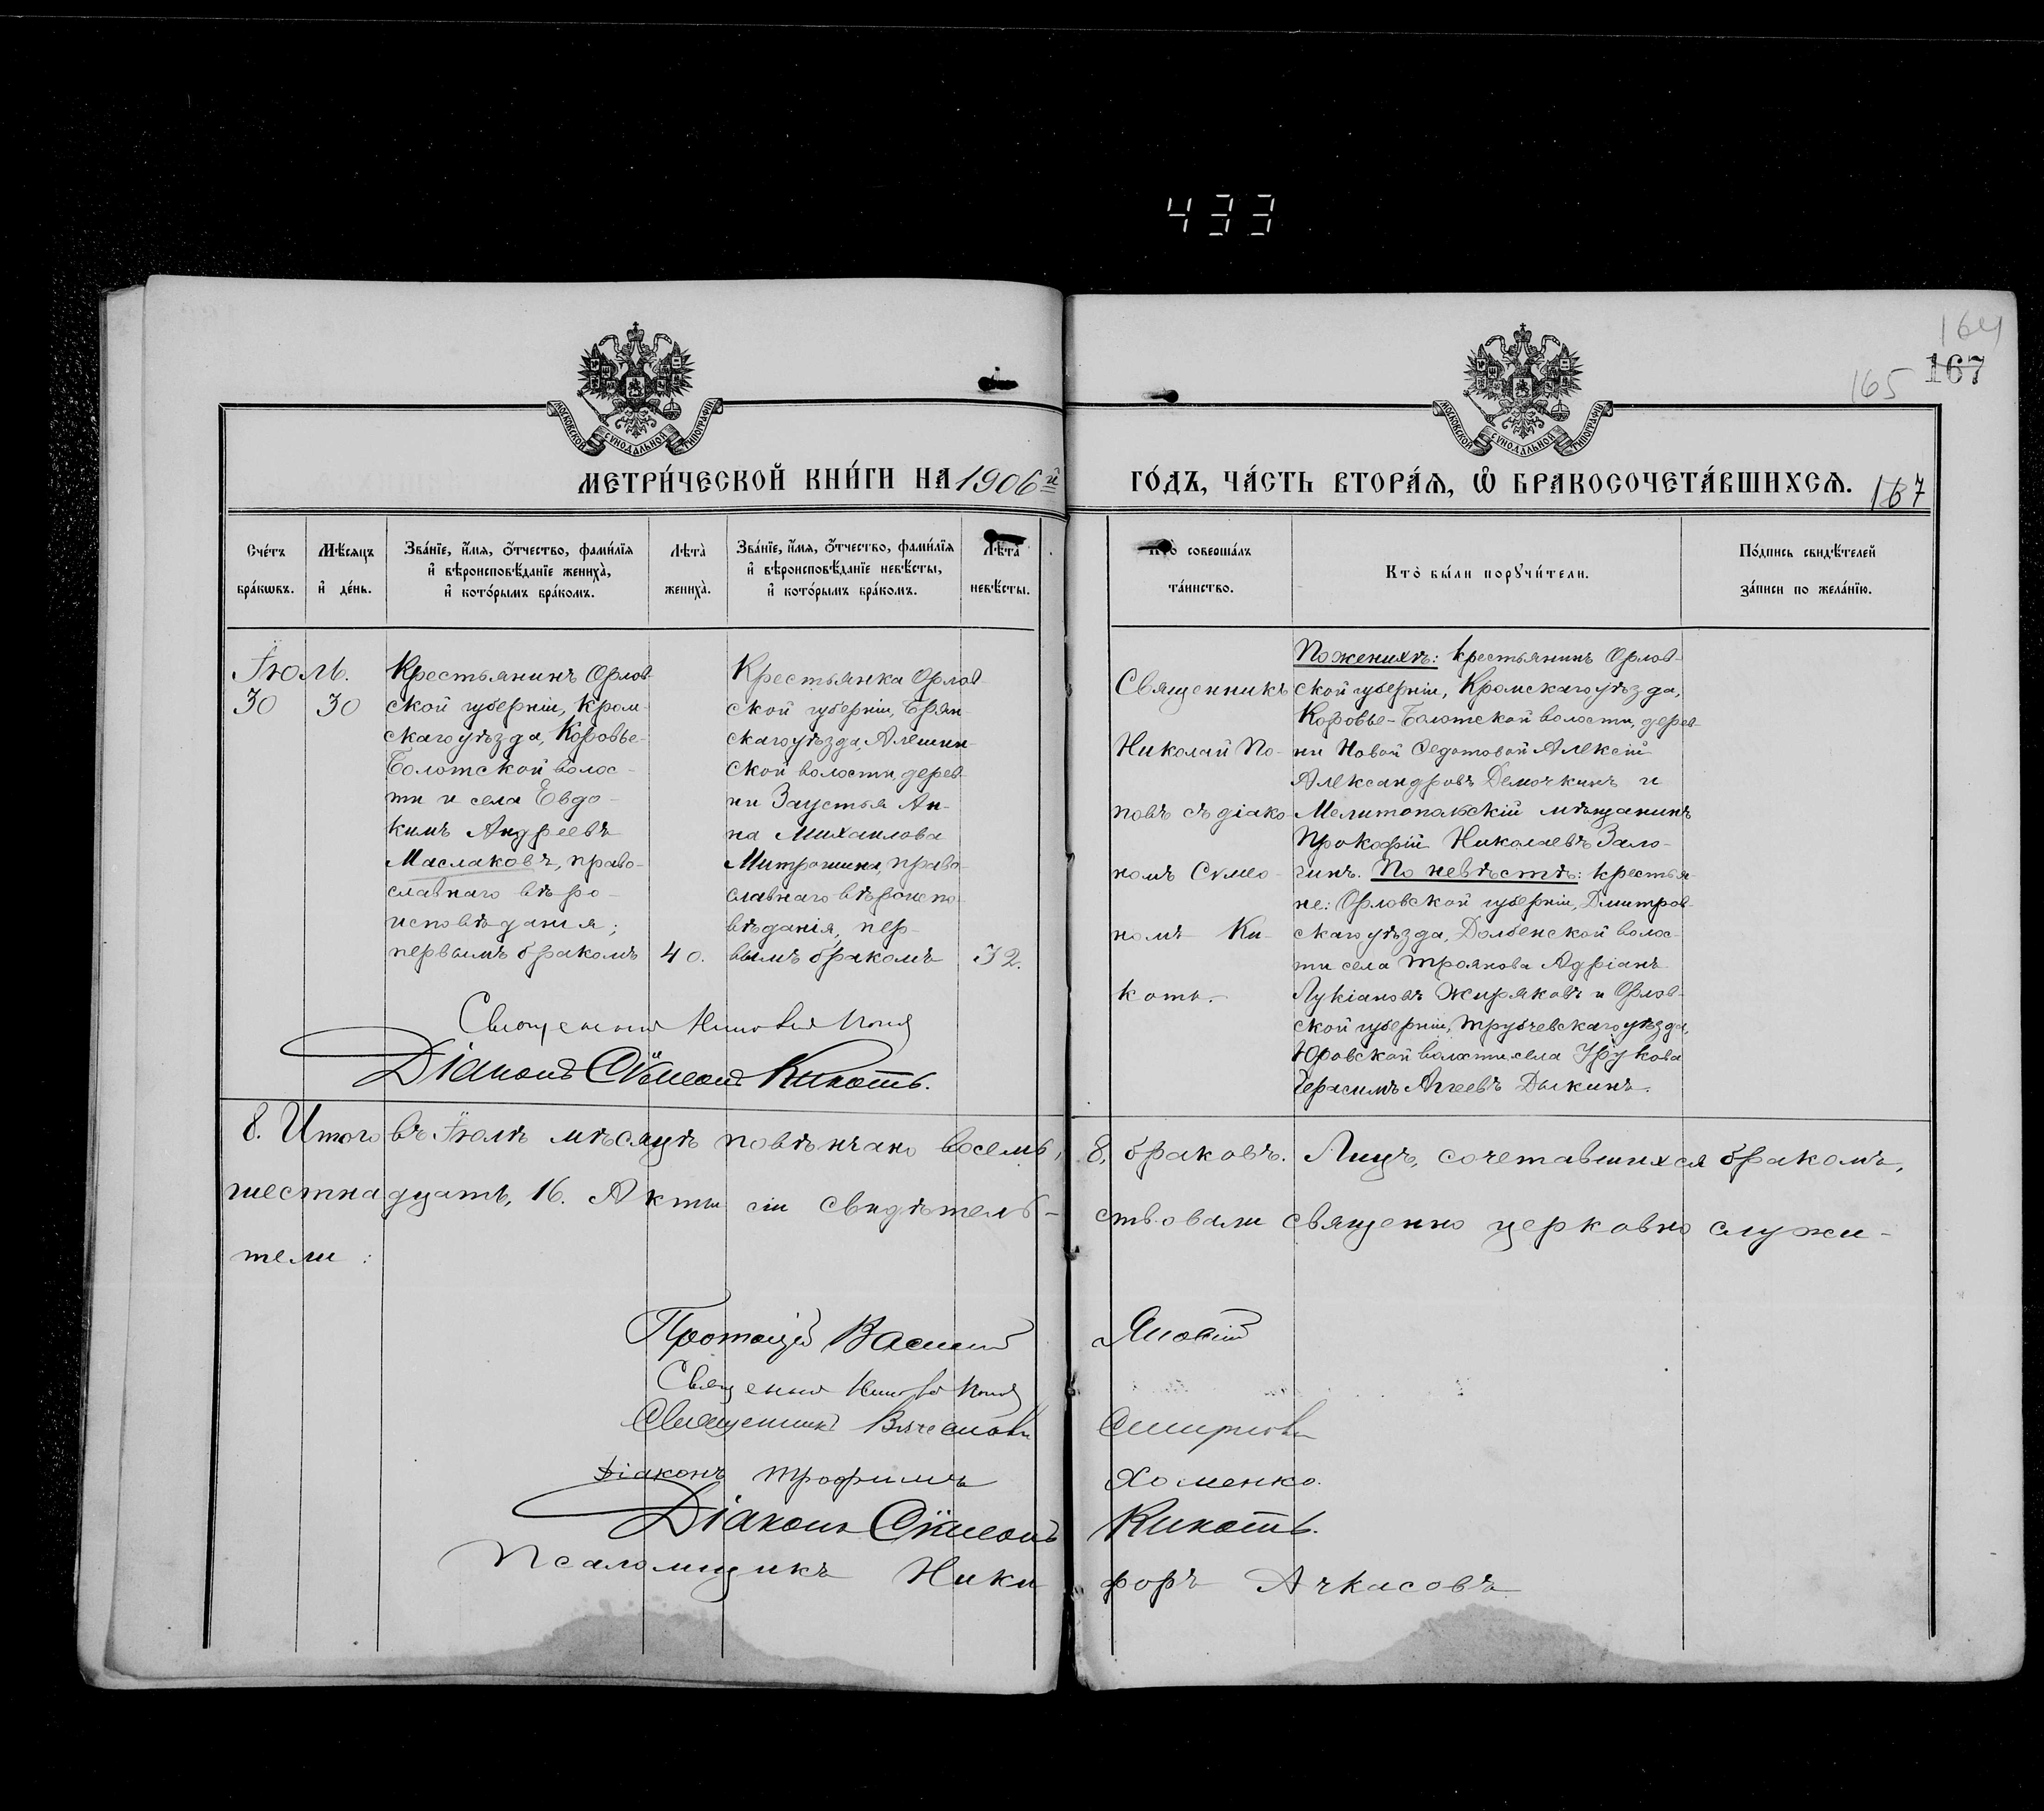 433
164
165 167
МОСКОВСКОЙ СѴНОДАЛЬНОЙ ТИПОГРАФІИ
МОСКОВСКОЙ СѴНОДАЛЬНОЙ ТИПОГРАФІИ
МЕТРИ́ЧЕСКОЙ КНИ́ГИ НА 1906й
ГО́ДЪ, ЧА́СТЬ ВТОРА́Я, Ѽ БРАКОСОЧЕТА́ВШИХСѦ. 167
Сче́тъ бра́кѡвъ.
Мѣ́сѧцъ и҆ де́нь.
Зва́нїе, и҆́мѧ, ѻ҆́тчество, фами́лїѧ
и҆ вѣроисповѣ́данїе жениха̀,
и҆ кото́рымъ бра́комъ.
Лѣта̀ жениха̀.
Зва́нїе, и҆́мѧ, ѻ҆́тчество, фами́лїѧ
и҆ вѣроисповѣ́данїе невѣ́сты,
и҆ кото́рымъ бра́комъ.
Лѣта̀ невѣ́сты.
Кто̀ соверша́лъ та́инство.
Кто̀ бы́ли порꙋчи́тели.
По́дпись свидѣ́телей
за́писи по жела́нїю.
Іюль.
30 30
Крестьянинъ Орлов-
ской губерніи, Кром-
скаго уѣзда, Коровье-
Болотской волос-
ти и села Евдо-
кимъ Андреевъ
Маслаковъ, право-
славнаго вѣро-
исповѣданія;
первымъ бракомъ 40.
Крестьянка Орлов-
ской губерніи, Брян-
скаго уѣзда, Алешин-
ской волости, дерев-
ни Заустья Ан-
на Михаилова
Митрошина, право-
славнаго вѣроиспо-
вѣданія, пер-
вымъ бракомъ 32.
Священникъ
Николай По-
повъ съ діако-
номъ Сѵмео-
номъ Ки-
коть.
По женихѣ: крестьянинъ Орлов-
ской губерніи, Кромскаго уѣзда,
Коровье-Болотской волости, дерев-
ни Новой Федотовой Алексій
Александровъ Демочкинъ и
Мелитопольскій мѣщанинъ
Прокофій Николаевъ Зало-
гинъ. По невѣстѣ: крестья-
не: Орловской губерніи, Дмитров-
скаго уѣзда, Долбенской волос-
ти села Троянова Адріанъ
Лукіановъ Жиряковъ и Орлов-
ской губерніи, Трубчевскаго уѣзда,
Юровской волости, села Уручова
Герасимъ Агеевъ Дыкинъ.
Священникъ Николай Поповъ
Діаконъ Сѵмеонъ Кикоть.
8. Итого въ Іюлѣ мѣсяцѣ повѣнчано восемь, 8, браковъ. Лицъ, сочетавшихся бракомъ,
шестнадцать, 16. Акты сіи свидѣтель- ствовали священно церковно служи-
тели:
Протоіерей Василій
Священникъ Николай Поповъ
Священникъ Вячеславъ Смирновъ
Діаконъ Трофимъ Хоменко.
Діаконъ Сѵмеонъ Кикоть.
Псаломщикъ Ники форъ Ачкасовъ